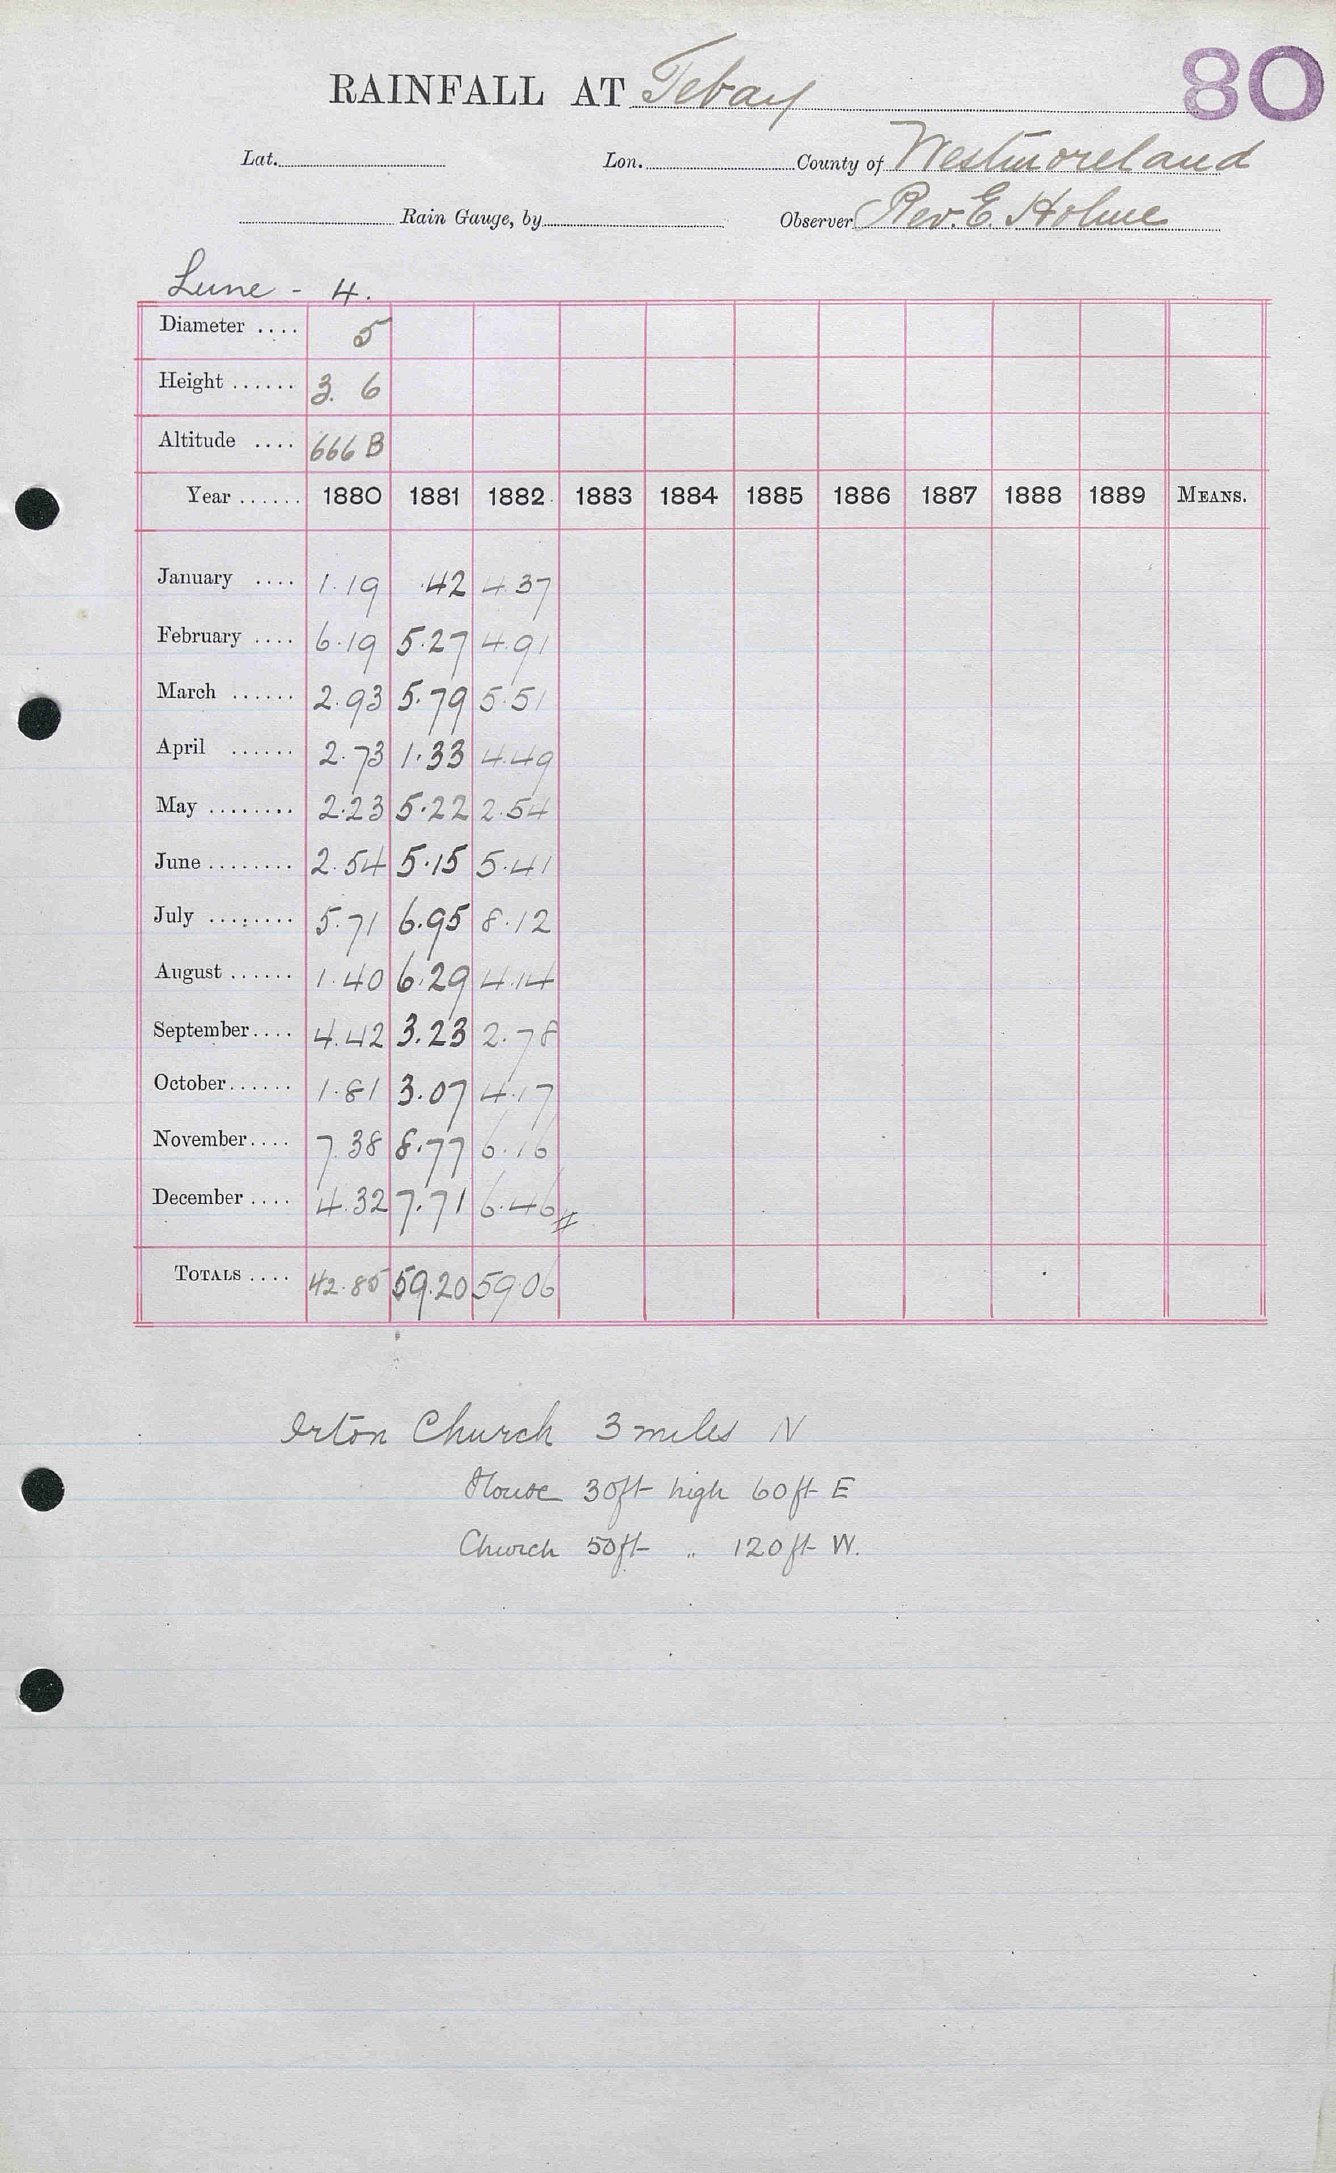 80
RAINFALL AT Tebay
Lat. Lon. County of Westmoreland
Rain Gauge, by Observer Rev. E. Holme
Lune - 4.
Diameter .... 5
Height ...... 3. 6
Altitude .... 666 B
Year ...... 1880 1881 1882 1883 1884 1885 1886 1887 1888 1889 MEANS.
January .... 1.19 .42 4.37
February .... 6.19 5.27 4.91
March ...... 2.93 5.79 5.51
April ...... 2.73 1.33 4.49
May ........ 2.23 5.22 2.54
June ........ 2.54 5.15 5.41
July ........ 5.71 6.95 8.12
August ...... 1.40 6.29 4.14
September.... 4.42 3.23 2.78
October...... 1.81 3.07 4.17
November.... 7.38 8.77 6.16
December .... 4.32 7.71 6.46
TOTALS .... 42.85 59.20 59.06
Orton Church 3 miles N
House 30ft high 60ft E
Church 50ft " 120ft W.